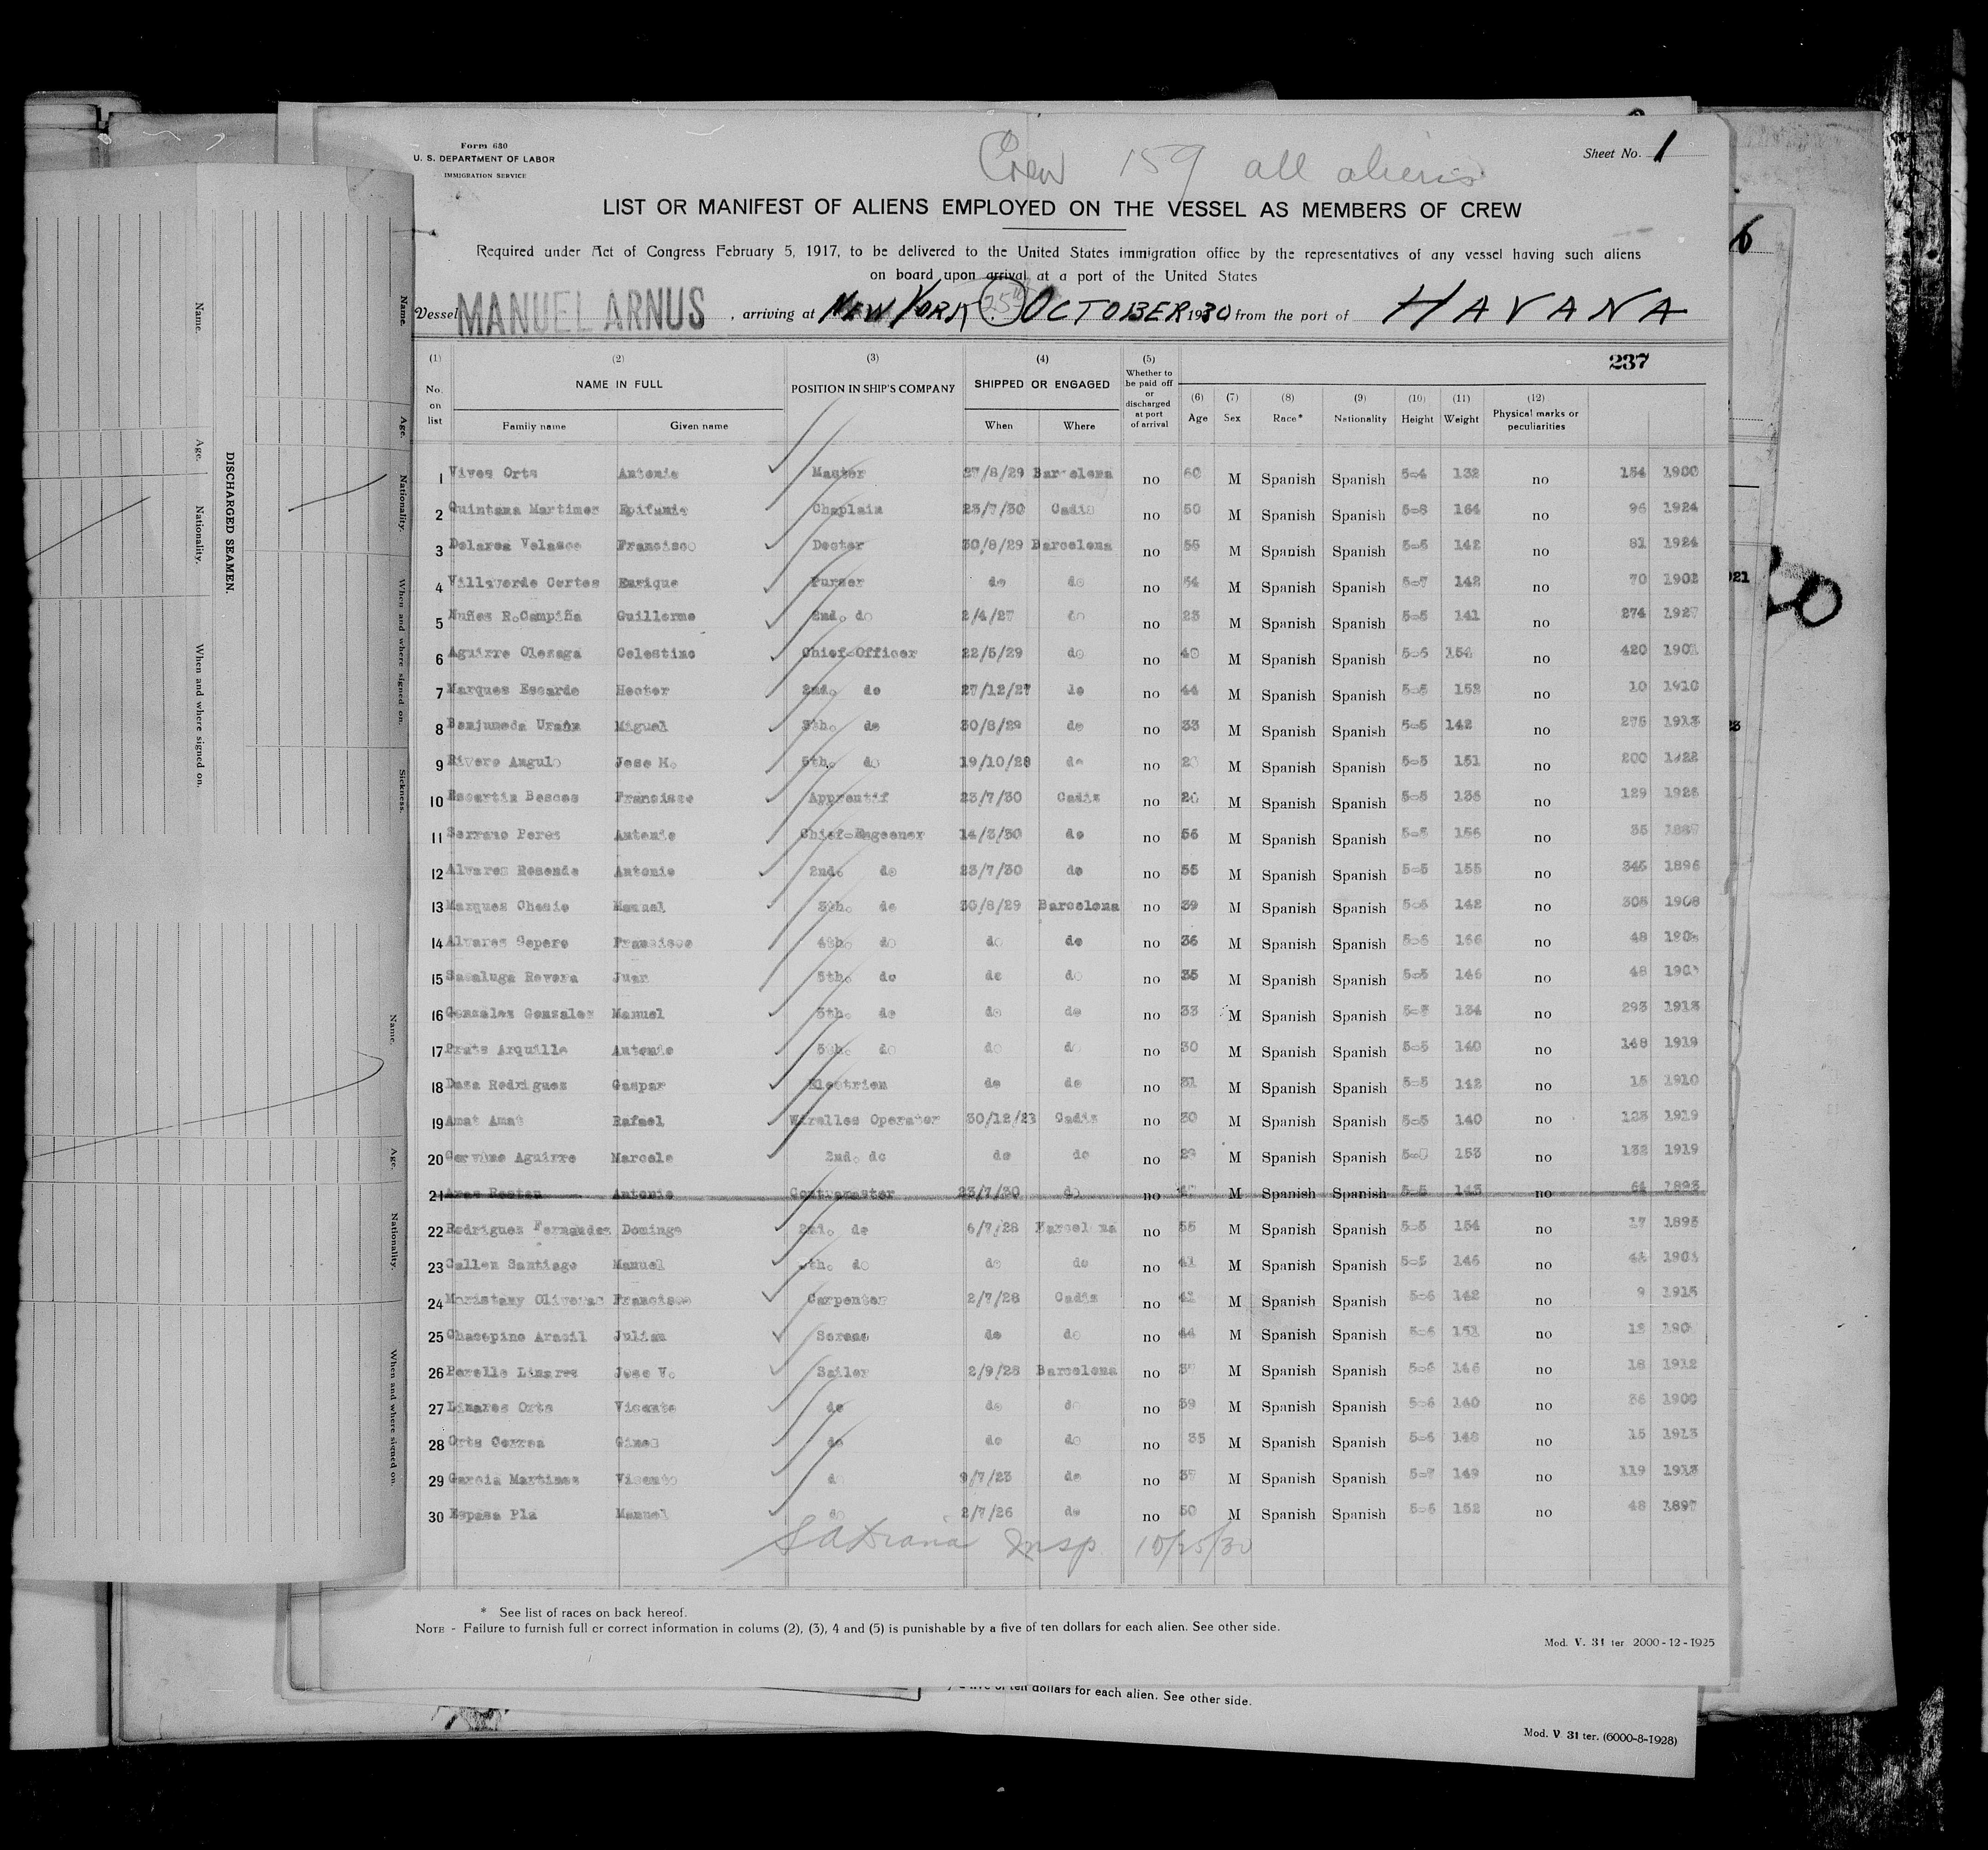 Form 630
U. S. DEPARTMENT OF LABOR
IMMIGRATION SERVICE
Crew 159 all aliens
Sheet No. 1
LIST OR MANIFEST OF ALIENS EMPLOYED ON THE VESSEL AS MEMBERS OF CREW
Required under Act of Congress February 5, 1917, to be delivered to the United States immigration office by the representatives of any vessel having such aliens
on board upon arrival at a port of the United States
Vessel MANUEL ARNUS, arriving at NEW YORK 25th OCTOBER 1930 from the port of HAVANA
237
(1) No. on list (2) NAME IN FULL Family name Given name (3) POSITION IN SHIP'S COMPANY (4) SHIPPED OR ENGAGED When Where (5) Whether to be paid off or discharged at port of arrival (6) Age (7) Sex (8) Race* (9) Nationality (10) Height (11) Weight (12) Physical marks or peculiarities
1 Vives Orts Antonio Master 27/8/29 Barcelona no 60 M Spanish Spanish 5-4 132 no 154 1900
2 Quintana Martinez Epifanio Chaplain 23/7/30 Cadiz no 50 M Spanish Spanish 5-8 164 no 96 1924
3 Velasco Francisco Docter 30/8/29 Barcelona no 55 M Spanish Spanish 5-5 142 no 81 1924
4 Villaverde Cortes Enrique Purser do do no 54 M Spanish Spanish 5-7 142 no 70
5 Nuñez R.Campiña Guillermo 2nd. do 2/4/27 do no 23 M Spanish Spanish 5-5 141 no 274 1927
6 Aguirre Olozaga Celestino Chief-Officer 22/5/29 do no 40 M Spanish Spanish 5-6 no 420 1901
7 Marques Escarde Hector 2nd. do 27/12/27 do no 44 M Spanish Spanish 5-5 152 no 10 1910
8 Miguel 3th. do 30/8/29 do no 33 M Spanish Spanish 5-5 142 no 275 1913
9 Rivero Angulo Jose M. 5th. do 19/10/28 do no M Spanish Spanish 5-5 151 no 200
10 Escartin Bescos Francisco Apprentif 23/7/30 Cadiz no M Spanish Spanish 5-5 136 no 129
11 Serrano Perez Antonio 14/3/30 do no 56 M Spanish Spanish 5-5 156 no 35
12 Alvarez Antonio 2nd. do 23/7/30 do no 55 M Spanish Spanish 5-5 155 no 345 1896
13 Marques Manuel 3th. do 30/8/29 Barcelona no 39 M Spanish Spanish 5-6 142 no 305 1908
14 Alvarez Francisco 4th. do do do no 36 M Spanish Spanish 5-6 166 no 48
15 Sacaluga Juan 5th. do do do no 35 M Spanish Spanish 5-5 146 no 48
16 Gonzalez Gonzalez Manuel 5th. do do do no 33 M Spanish Spanish 134 no 293 1913
17 Prats Arquille Antonio 5th. do do do no 30 M Spanish Spanish 5-5 140 no 148 1919
18 Daza Rodriguez Gaspar do do no 31 M Spanish Spanish 5-5 142 no 15 1910
19 Amat Amat Rafael Wirelles Operator Cadiz no 30 M Spanish Spanish 5-5 140 no 123 1919
20 Aguirre Marcelo 2nd. do do do no 29 M Spanish Spanish 153 no 132 1919
21 Antonio Contramaster 23/7/30 do no M Spanish Spanish 5-5 143 no 64 1893
22 Rodriguez Fernandez Domingo do 6/7/28 no 55 M Spanish Spanish 5-5 154 no 17 1895
23 Santiago Manuel do do do no 41 M Spanish Spanish 5-5 146 no
24 Maristany Oliveras Francisco Carpenter 2/7/28 Cadiz no M Spanish Spanish 5-6 142 no 9 1915
25 Chacopino Aracil Julian Sereno do do no 44 M Spanish Spanish 5-6 151 no
26 Perello Linares Jose V. Sailor 2/9/28 Barcelona no M Spanish Spanish 5-6 146 no 18 1912
27 Linares Orts Vicente do do do no 39 M Spanish Spanish 5-6 140 no 36 1900
28 Orts Gines do do do no 35 M Spanish Spanish 5-6 148 no 15 1913
29 Garcia Martinez Vicente do no 37 M Spanish Spanish 149 no 119 1913
30 Espasa Pla Manuel do 2/7/26 do no 50 M Spanish Spanish 5-6 152 no 48 1897
Insp. 10/25/30
* See list of races on back hereof.
NOTE - Failure to furnish full or correct information in colums (2), (3), 4 and (5) is punishable by a five of ten dollars for each alien. See other side.
Mod. V. 31 ter 2000-12-1925
five of ten dollars for each alien. See other side.
Mod. V 31 ter. (6000-8-1928)
DISCHARGED SEAMEN.
Name. Age. Nationality. When and where signed on.
Name. Age. Nationality. When and where signed on. Sickness.
Name. Age. Nationality. When and where signed on.